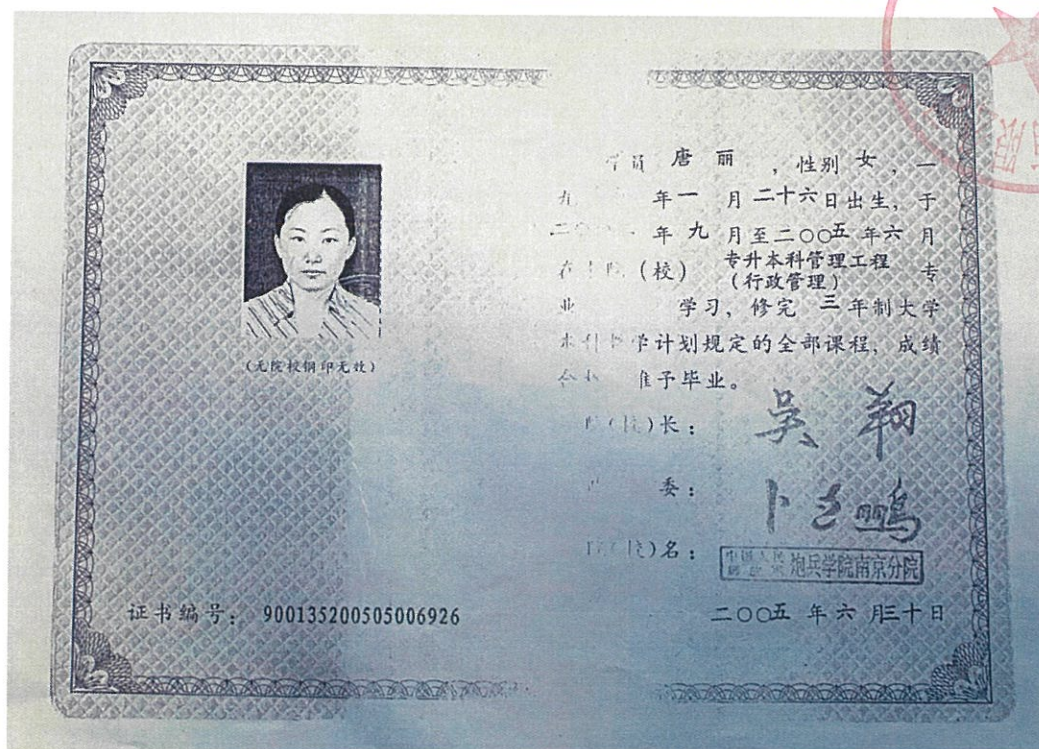 学员 唐丽，性别 女，一
九 年一月二十六日出生，于
二〇 年九月至二〇〇五年六月
在 院（校） 专升本科管理工程（行政管理） 专
业 学习，修完 三年制大学
本科 学计划规定的全部课程，成绩
合格 准予毕业。
(无院校钢印无效)
（校）长： 吴翔
委：
（校）名： 中国人民解放军 炮兵学院南京分院
证书编号：900135200505006926
二〇〇五 年六月三十日
有限